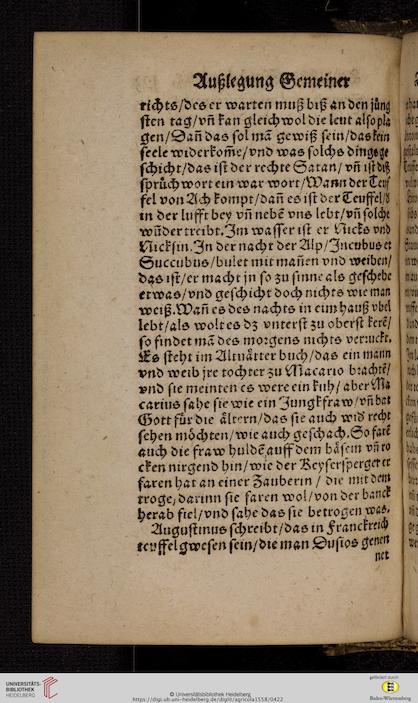 Außlegung Gemeiner
richts/des er warten muß biß an den jüng
sten tag/vn̄ kan gleichwol die leut also pla
gen/Dan̄ das sol mā gewiß sein/das kein
seele widerkom̄e/vnd was solchs dings ge
schicht/das ist der rechte Satan/vn̄ ist diß
sprüchwort ein war wort/Wann der Teuf
fel von Ach kompt/dan̄ es ist der Teuffel/d
in der lufft bey vn̄ nebē vns lebt/vn̄ solche
wūder treibt. Im wasser ist er Nicks vnd
Nicksin. In der nacht der Alp/Incubus et
Succubus/bulet mit man̄en vnd weiben/
das ist/er macht jn so zu sinne als geschehe
etwas/vnd geschicht doch nichts wie man
weiß. Wan̄ es des nachts in eim hauß vbel
lebt/als wolt es dz vnterst zu oberst kerē/
so findet mā des morgens nichts verruckt.
Es steht im Altuätter buch/das ein mann
vnd weib jre tochter zu Macario brachtē/
vnd sie meinten es were ein kuh/ aber Ma
carius sahe sie wie ein Jungkfraw/vn̄ bat
Gott für die ältern/das sie auch wid recht
sehen möchten/wie auch geschach. So farē
auch die fraw huldē auff dem bäsem vn̄ ro
cken nirgend hin/wie der Keysersperger er
faren hat an einer Zauberin / die mit dem
troge/darinn sie faren wol/von der banck
herab fiel/vnd sahe das sie betrogen was.
Augustinus schreibt/das in Franckreich
teuffel gwesen sein/die man Dusios genen
net
UNIVERSITÄTS-
BIBLIOTHEK
HEIDELBERG
© Universitätsbibliothek Heidelberg
https://digi.ub.uni-heidelberg.de/diglit/agricola1558/0422
gefördert durch
Baden-Württemberg